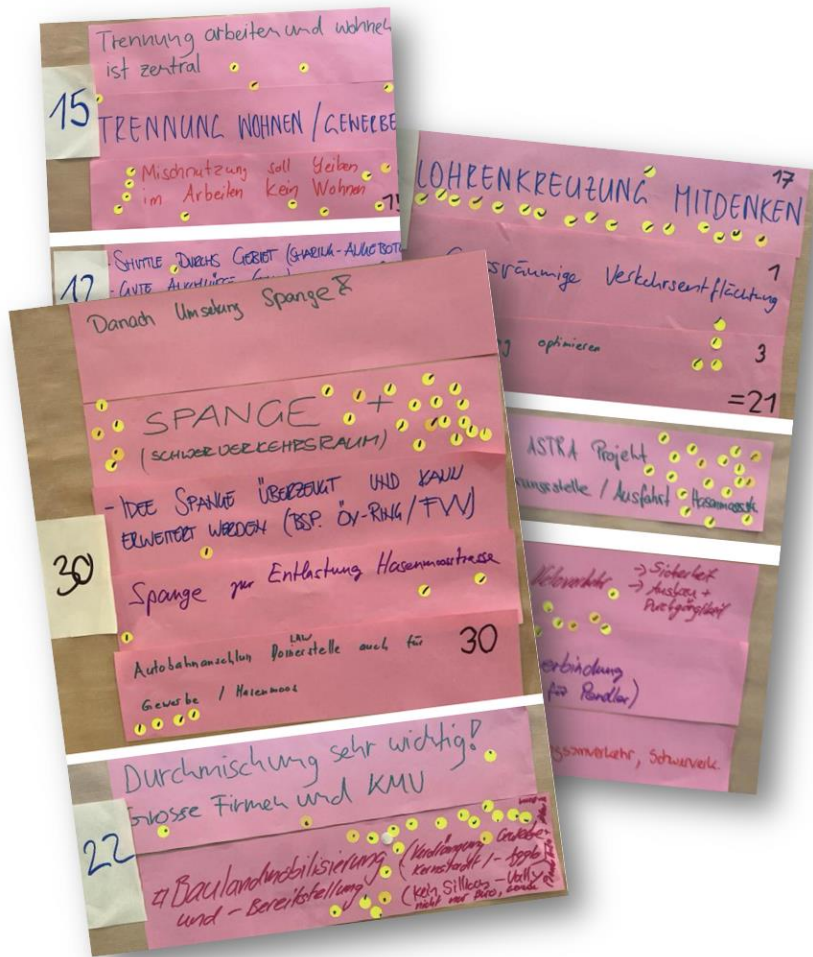 Trennung arbeiten und wohnen
ist zentral
15
TRENNUNG WOHNEN / GEWERBE
Mischnutzung soll bleiben
im Arbeiten kein Wohnen
12
- SHUTTLE DURCHS GEBIET (SHARING-ANGEBOTE
- GUTE
LOHRENKREUZUNG MITDENKEN
17
Verkehrsentflächtung
1
optimieren
3
=21
ASTRA Projekt
/ Ausfahrt Hasenmoosstr.
Veloverkehr → Sicherheit
→ Ausbau +
Durchgängigkeit
erbindung
für Pendler)
Schwerverk.
Danach Umsetzung Spange
SPANGE +
(SCHWERVERKEHRSRAUM)
30
- IDEE SPANGE ÜBERZEUGT UND KANN
ERWEITERT WERDEN (BSP. ÖV-RING / FVV)
Spange zur Entlastung Hasenmoosstrasse
Autobahnanschluss LAW Dosierstelle auch für
Gewerbe / Hasenmoos
30
Durchmischung sehr wichtig!
Grosse Firmen und KMU
22
# Baulandmobilisierung
und - Bereitstellung
(kein Silicon-Vally
nicht nur Büro,